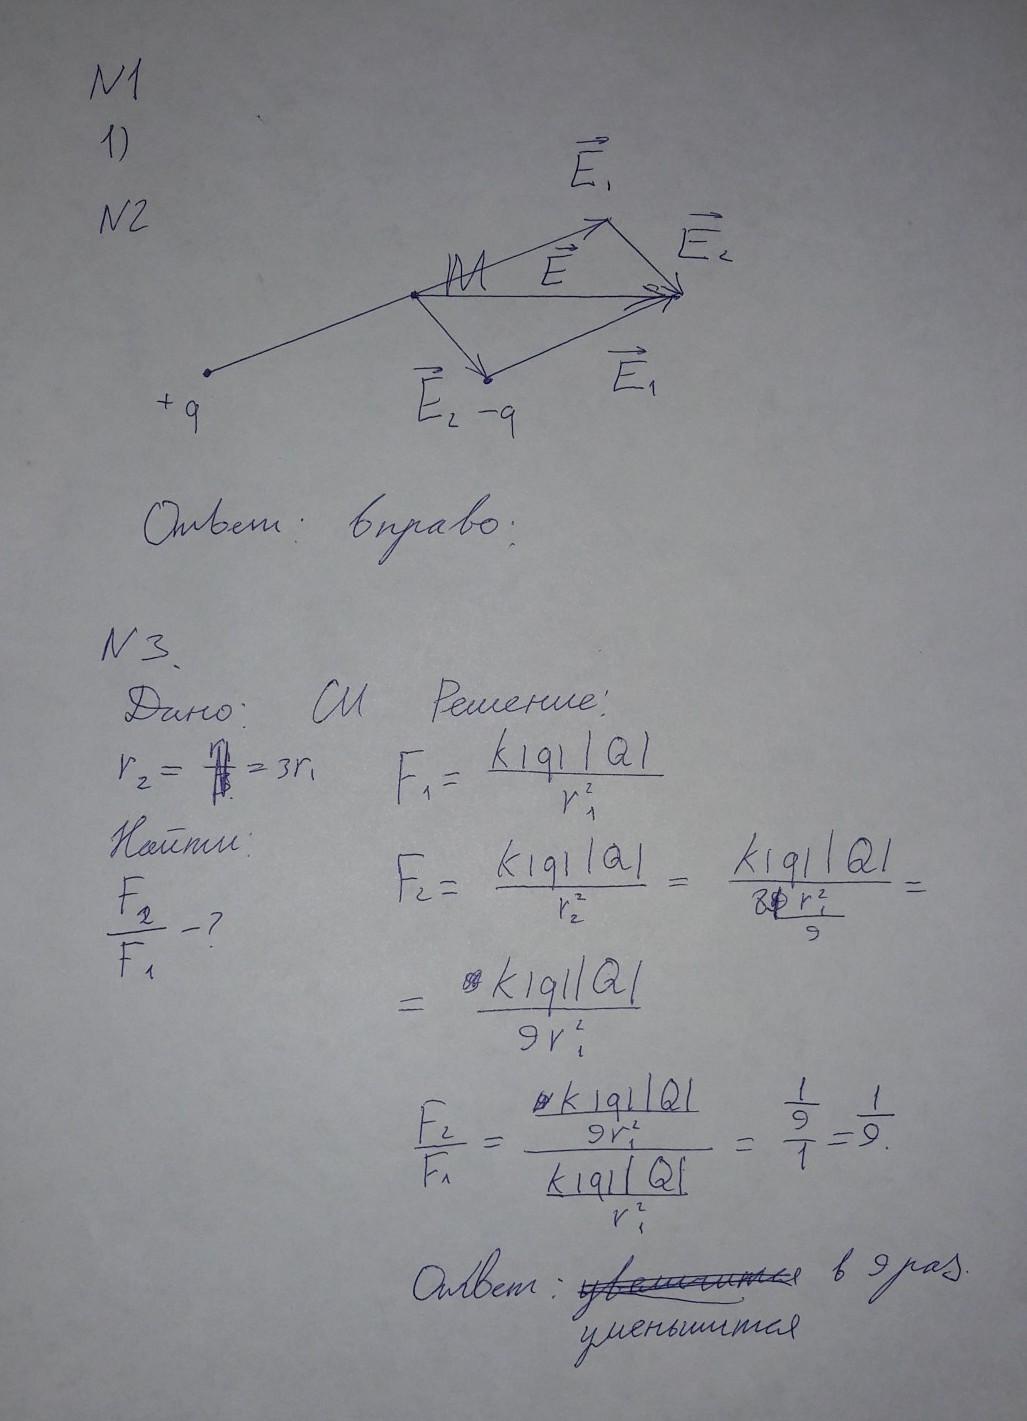 N1
1)
N2
E₁
E₂
M E
E₁
+q E₂ -q
Ответ: вправо.
N3.
Дано: СИ Решение:
r₂ = = 3r₁ F₁ = k|q||Q| / r₁²
Найти:
F₂ / F₁ - ? F₂ = k|q||Q| / r₂² = k|q||Q| / r₁² 9 =
= k|q||Q| / 9r₁²
F₂ / F₁ = k|q||Q| / 9r₁² / k|q||Q| / r₁² = 1/9 / 1 = 1/9.
Ответ: увеличится в 9 раз.
уменьшится